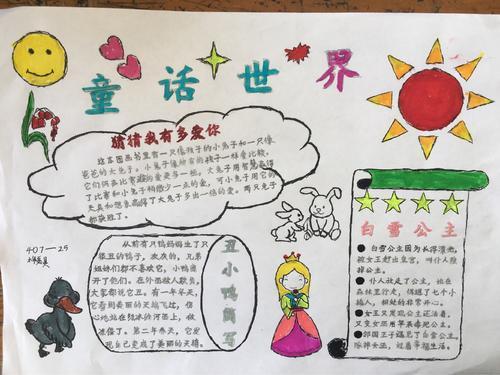 童话世界
猜猜我有多爱你
这本图画书里有一只像孩子的小兔子和一只像
爸爸的大兔子。小兔子像所有的孩子一样爱比较。
它们俩在比赛谁的爱更多一些。大兔子用智慧赢得
了比赛和小兔子稍微少一点的爱,可小兔子用它的
天真和想象赢得了大兔子多出一倍的爱。两只兔子
都获胜了。
407-25
丑小鸭简写
从前有只鸭妈妈生了只
很丑的鸭子,
姐妹们都不喜欢它,小鸭离
开了他们。在外面被人欺负
大家都说它丑。有一年冬天,
它看到美丽的天鹅飞过,
冻僵了。第二年春天,它发
现自己变成了美丽的天鹅。
白雪公主
白雪公主因为长得漂亮,
被女王赶出皇宫,叫仆人除
掉公主。
仆人放走了公主,她在
森林里行走,借遇了七个小
矮人,相处的非常开心。
女王又发现公主还活着,
又变女巫用苹果毒死公主。
邻国王子遇见了白雪公主,
除掉女巫,过着幸福生活。